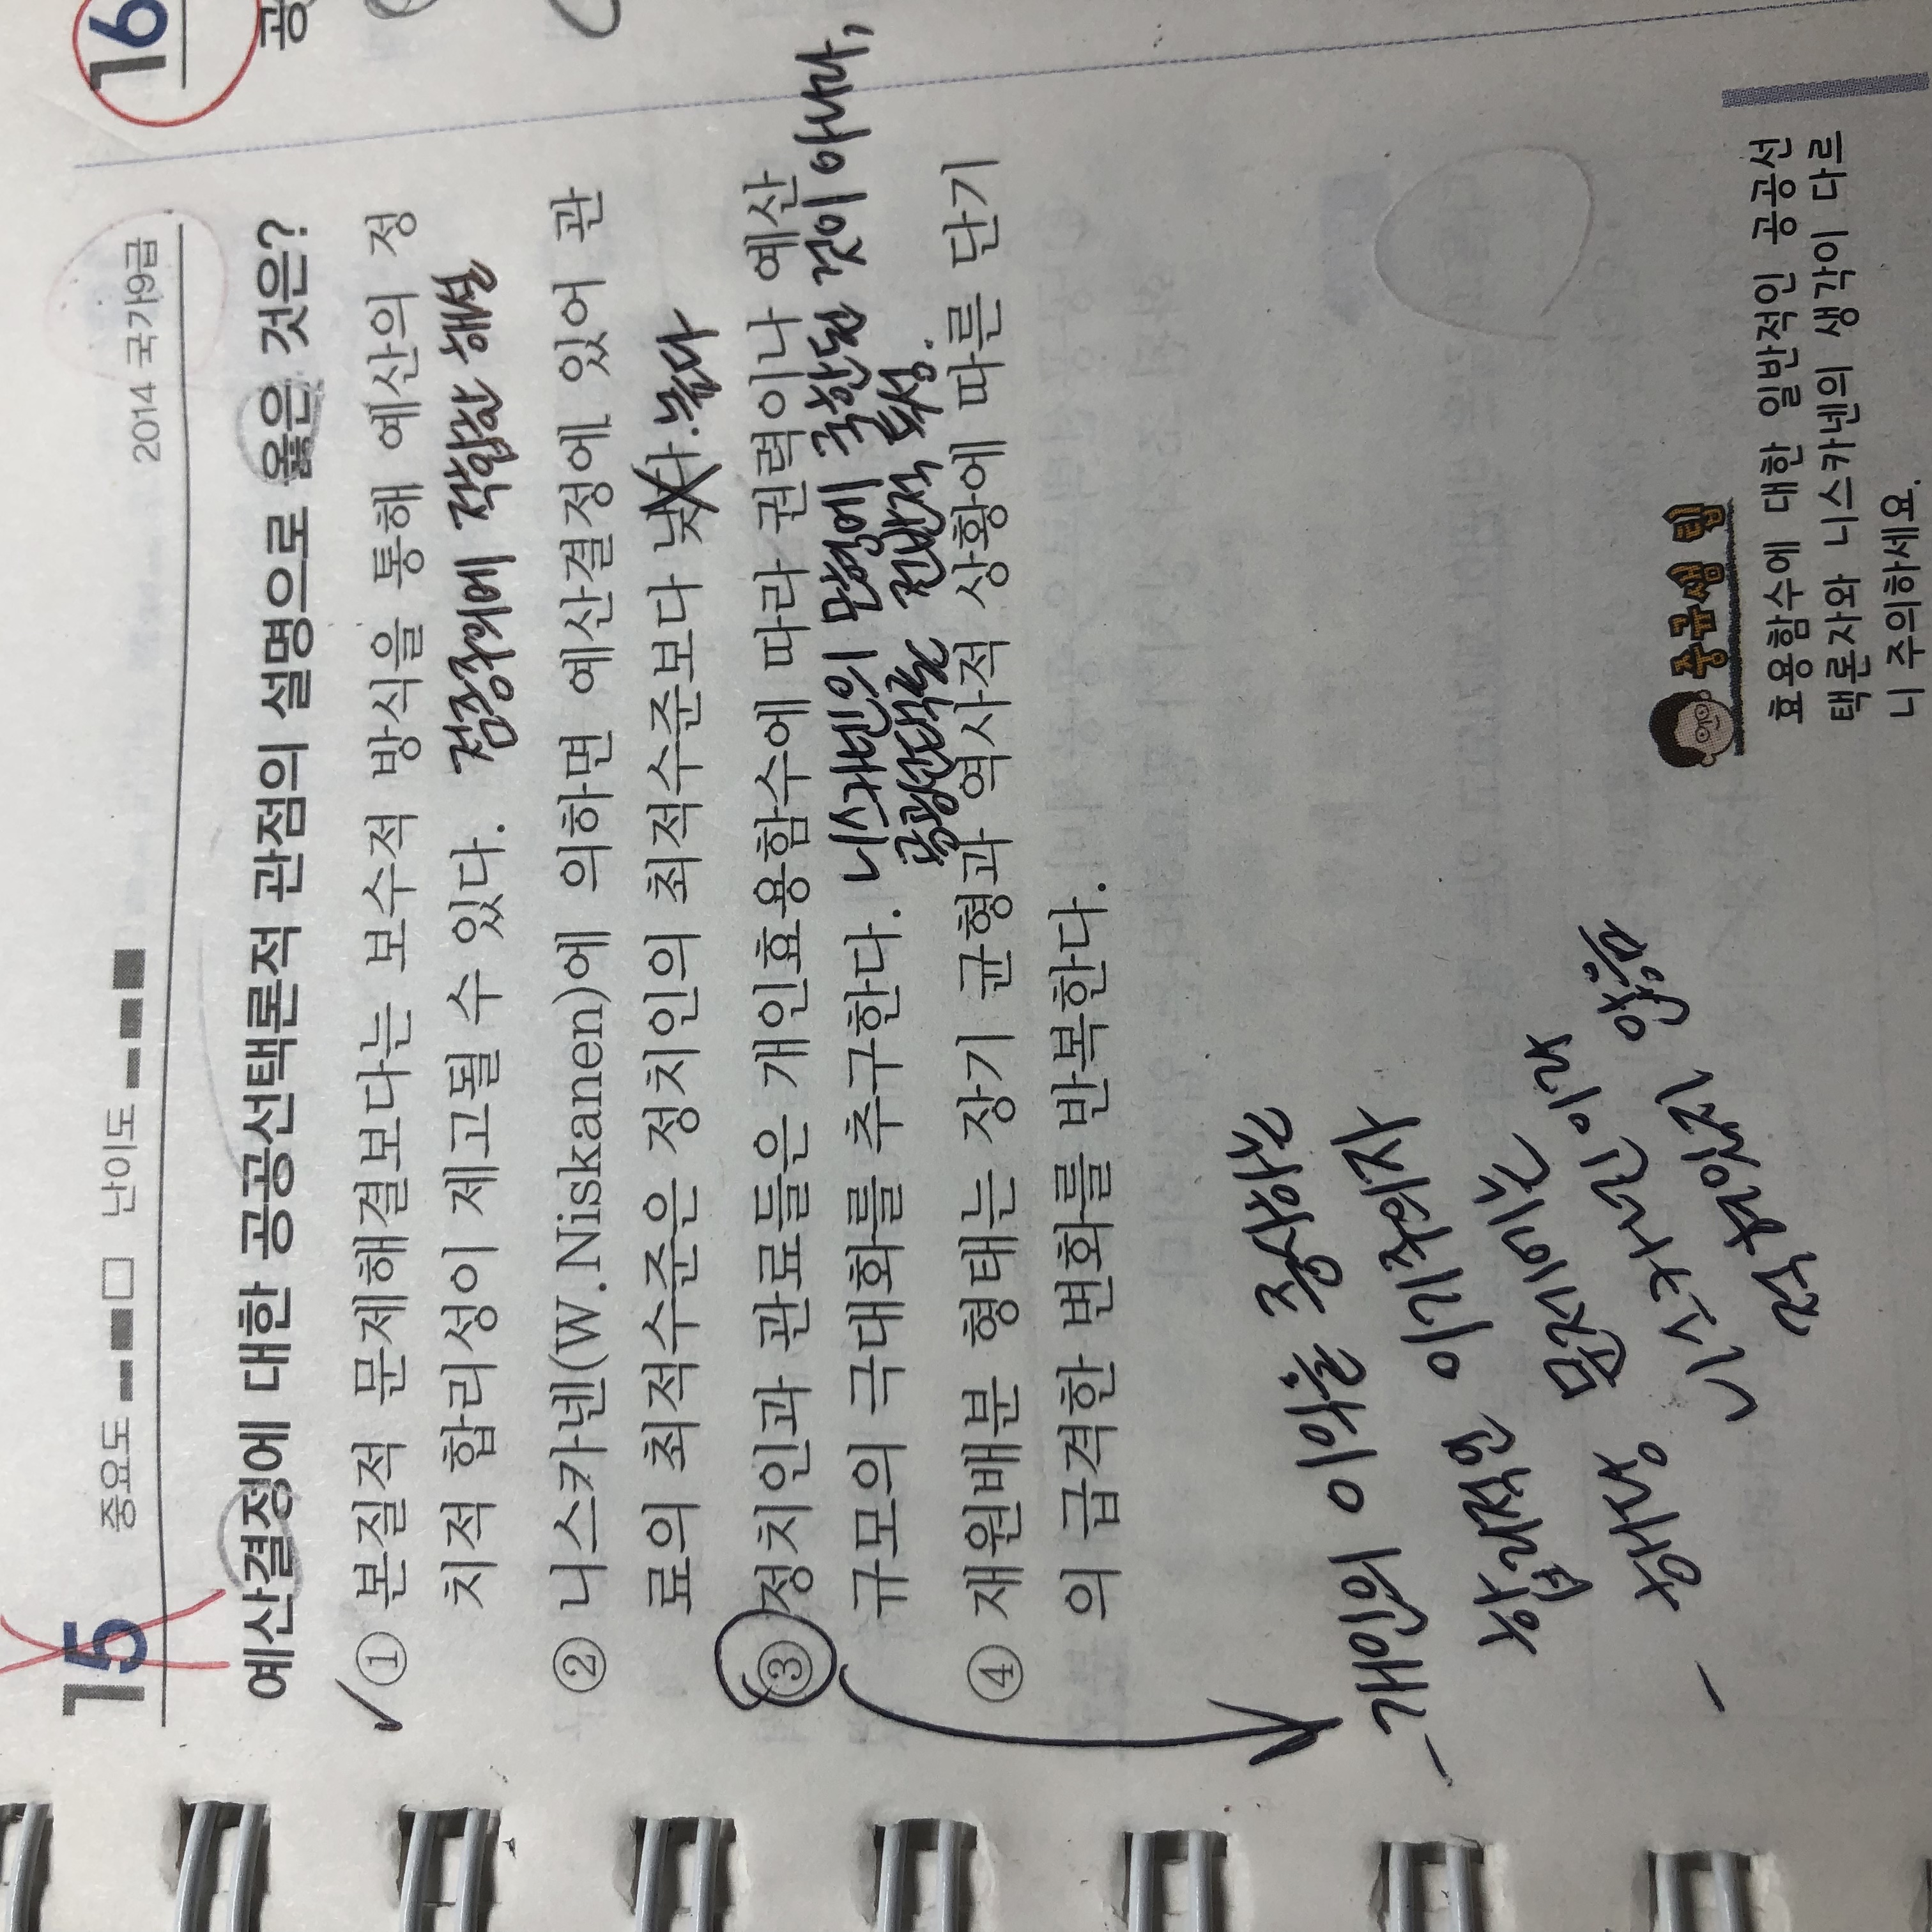 15 중요도 난이도 2014 국가9급
예산결정에 대한 공공선택론적 관점의 설명으로 옳은 것은?
① 본질적 문제해결보다는 보수적 방식을 통해 예산의 정
치적 합리성이 제고될 수 있다. 점증주의에 적합한 해설
② 니스카넨(W.Niskanen)에 의하면 예산결정에 있어 관
료의 최적수준은 정치인의 최적수준보다 낮다. 높다
③ 정치인과 관료들은 개인효용함수에 따라 권력이나 예산
규모의 극대화를 추구한다. 니스카넨의 모형에 국한된 것이 아니라,
공공선택론 전반적 특성.
④ 재원배분 형태는 장기 균형과 역사적 상황에 따른 단기
의 급격한 변화를 반복한다.
- 개인의 이익을 중시하는
합리적인 이기주의자
- 해당 문제에는
니스카넨이
적혀있지 않음
중규쌤 팁
효용함수에 대한 일반적인 공공선
택론자와 니스카넨의 생각이 다르
니 주의하세요.
16
공